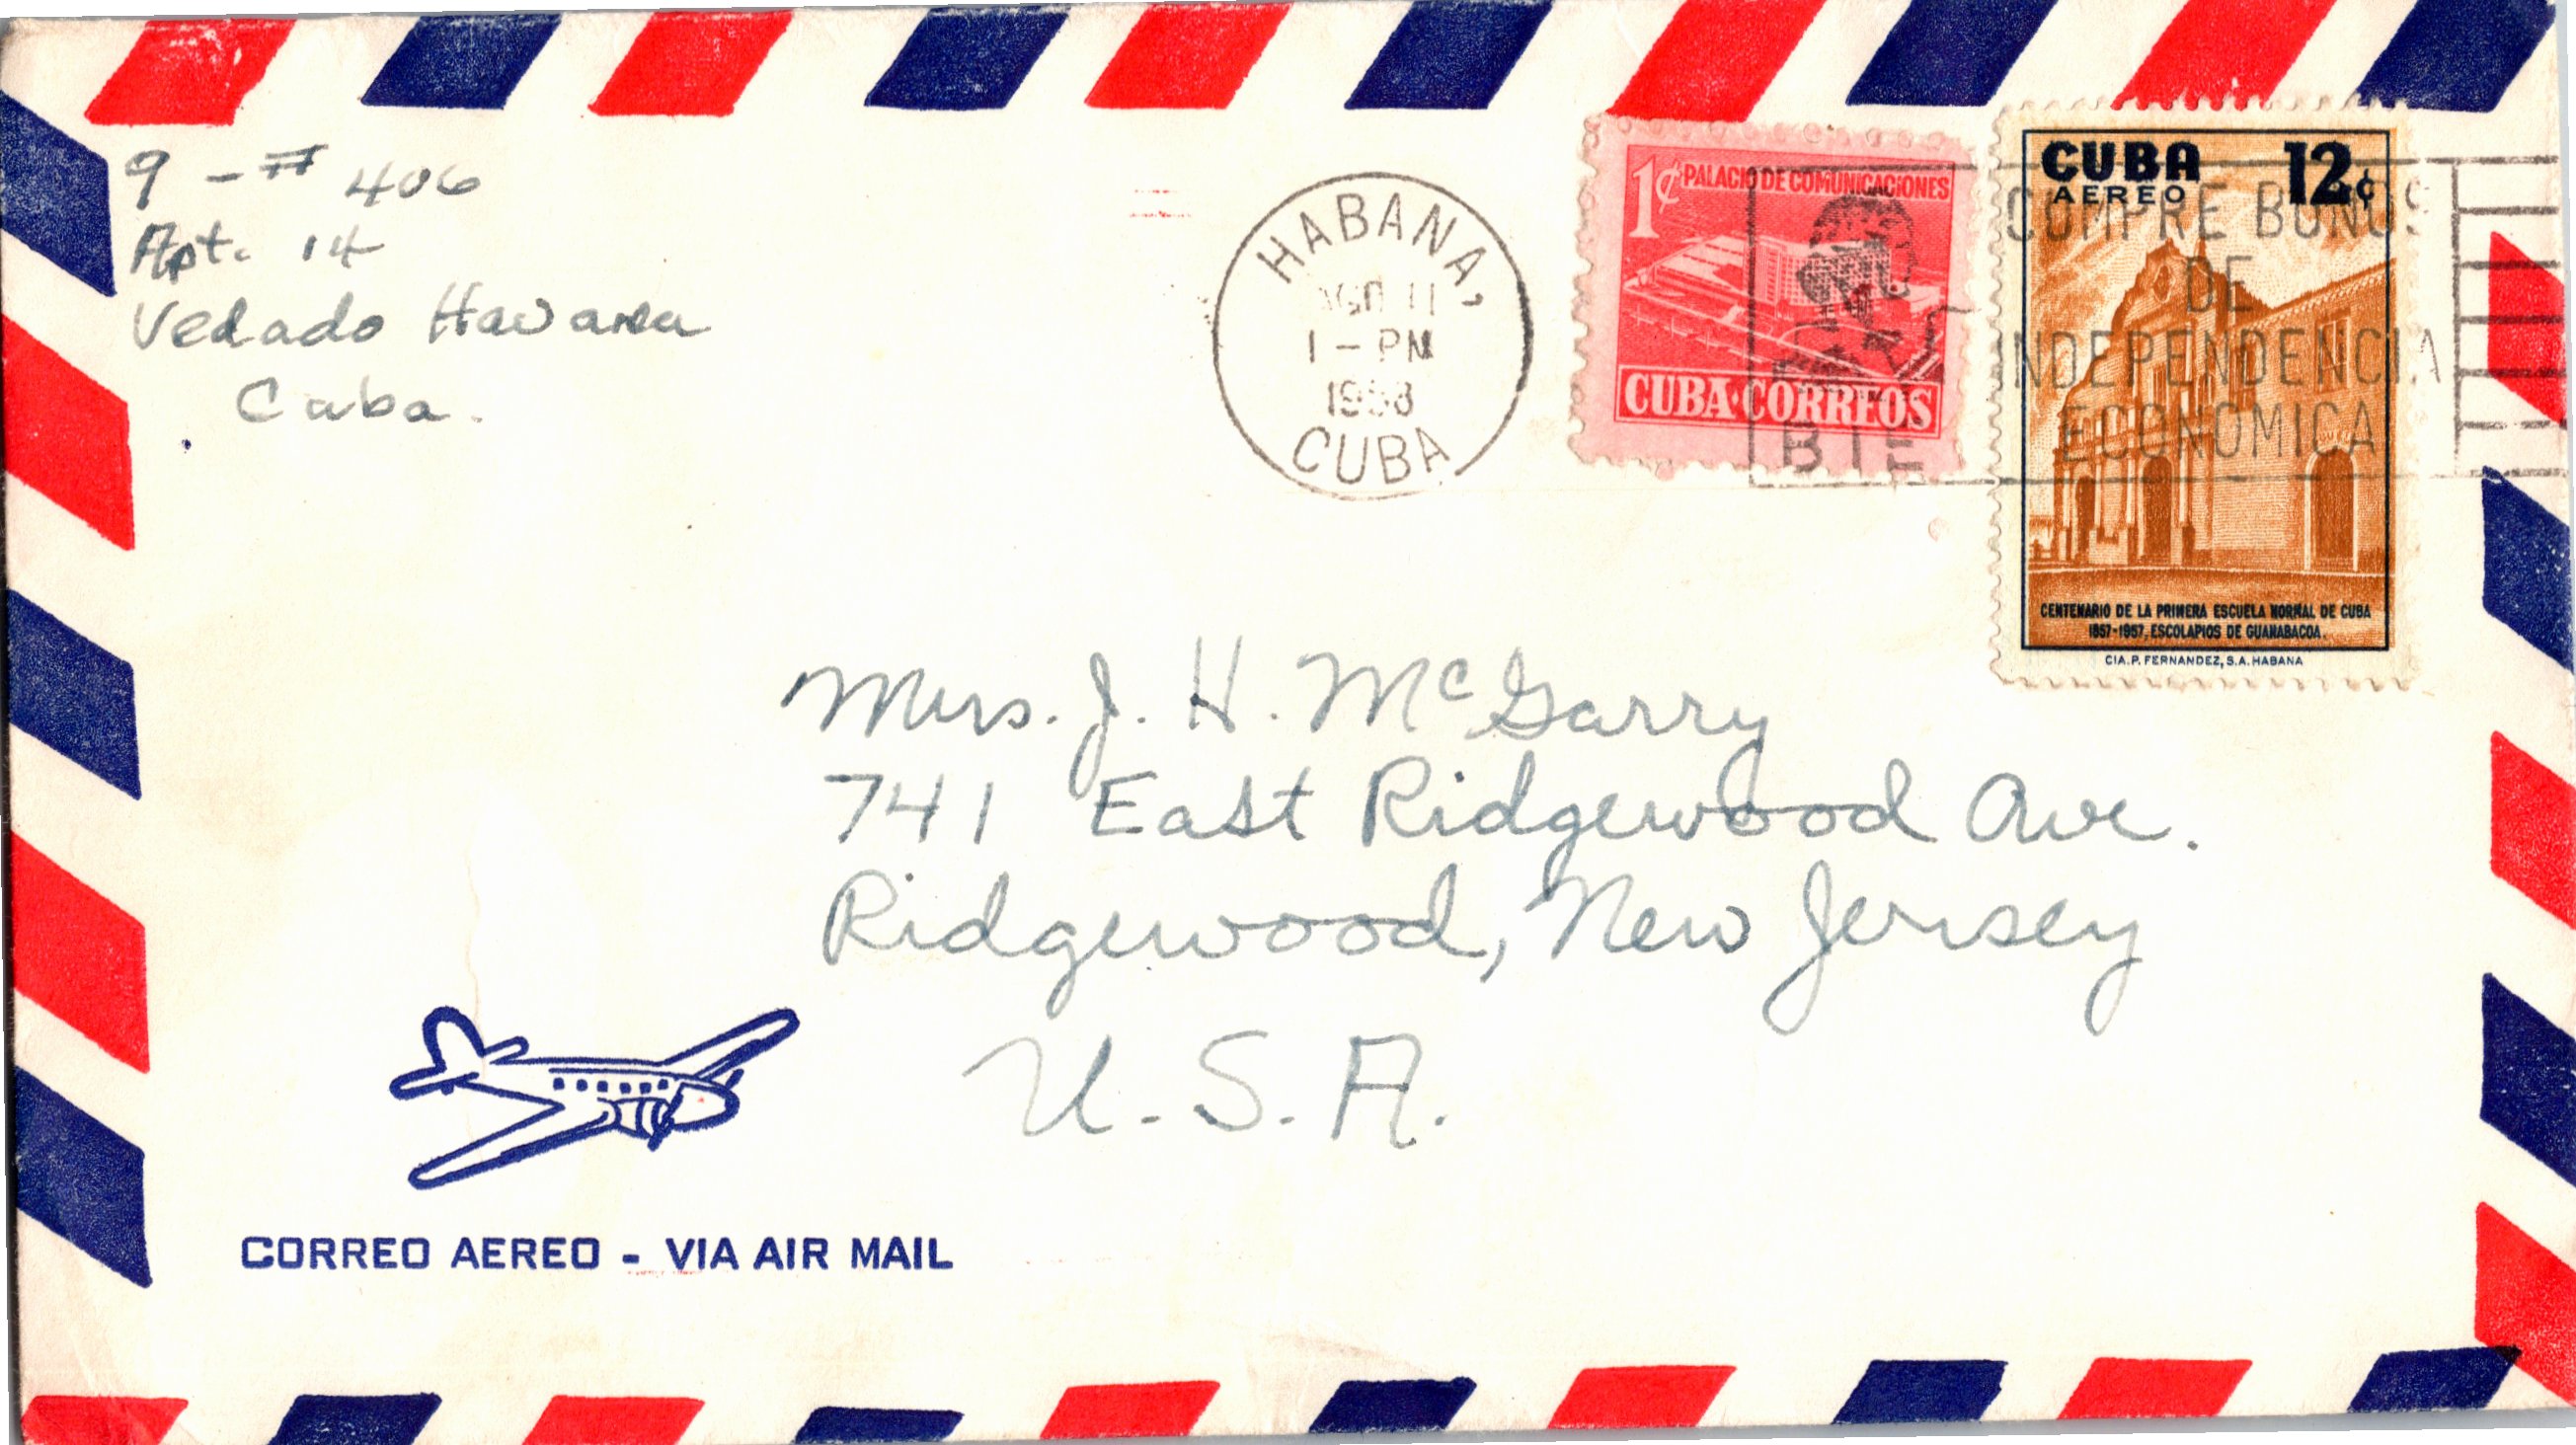 9 - # 406
Apt. 14
Vedado Havana
Cuba.
HABANA,
AGO 11
1 - PM
1958
CUBA
1¢ PALACIO DE COMUNICACIONES
CUBA·CORREOS
BTE
CUBA 12¢
AEREO
COMPRE BONOS
DE
INDEPENDENCIA
ECONOMICA
CENTENARIO DE LA PRIMERA ESCUELA NORMAL DE CUBA
1857-1957, ESCOLAPIOS DE GUANABACOA.
CIA. P. FERNANDEZ, S.A. HABANA
Mrs. J. H. McGarry
741 East Ridgewood Ave.
Ridgewood, New Jersey
U.S.A.
CORREO AEREO - VIA AIR MAIL